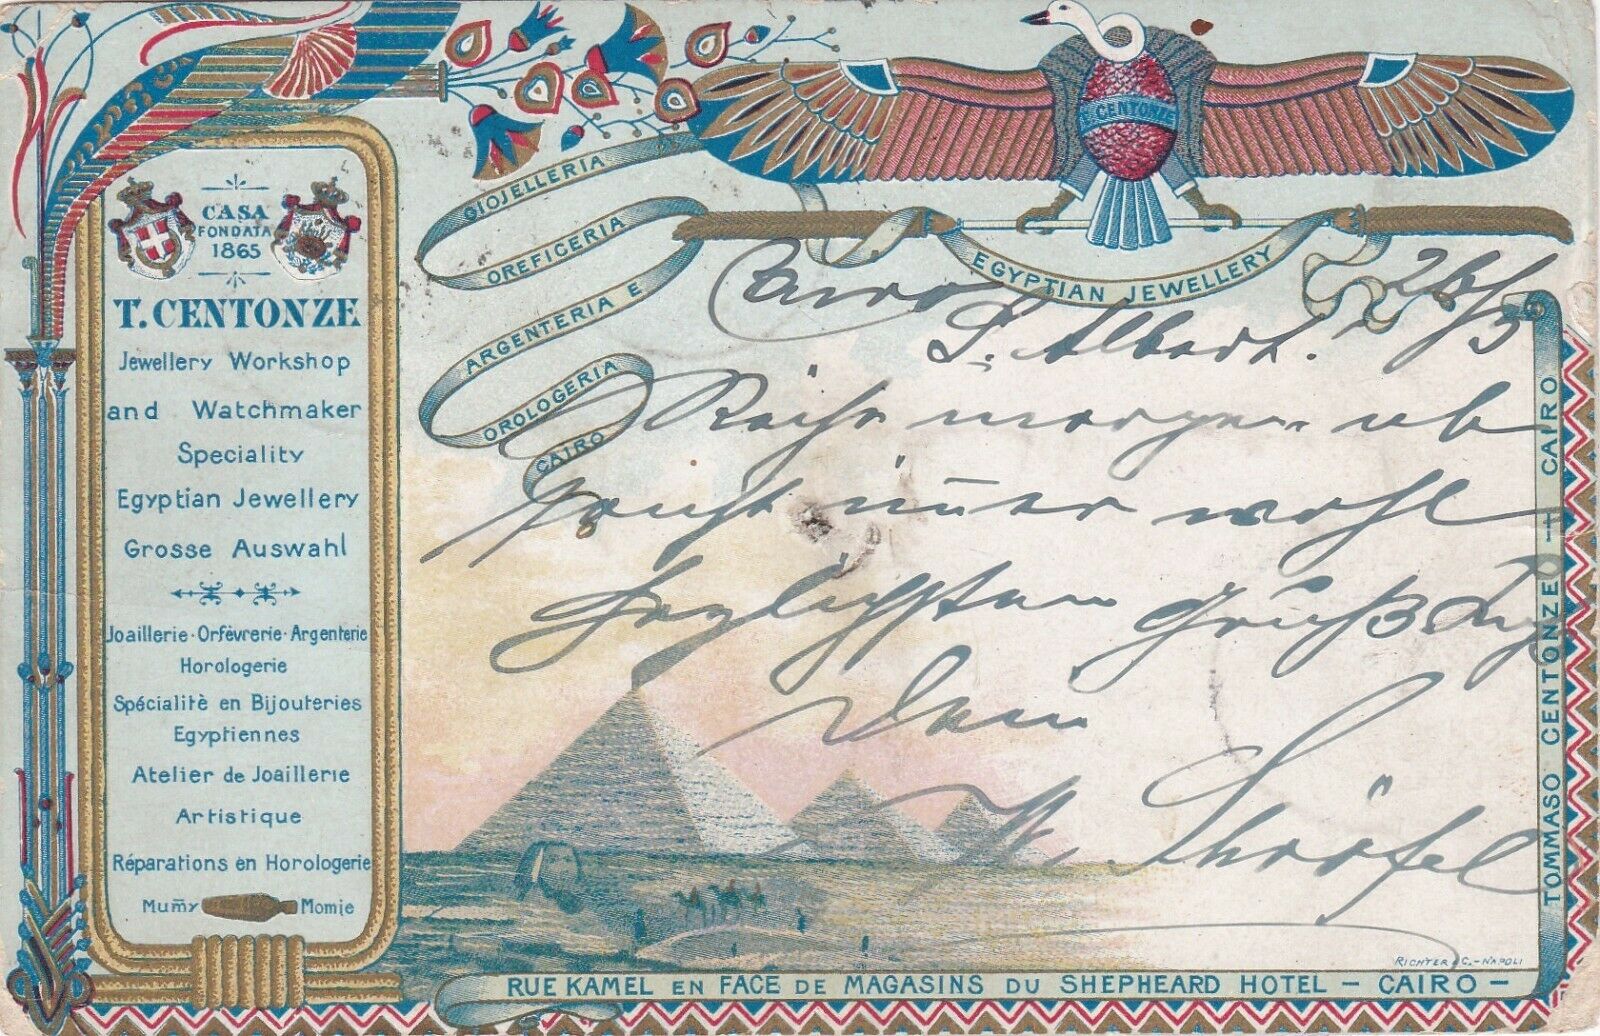 CASA
FONDATA
1865
T. CENTONZE
Jewellery Workshop
and Watchmaker
Speciality
Egyptian Jewellery
Grosse Auswahl
Joaillerie·Orfèvrerie·Argenterie
Horologerie
Spécialitè en Bijouteries
Egyptiennes
Atelier de Joaillerie
Artistique
Réparations en Horologerie
Mumy Momie
GIOJELLERIA
OREFICERIA
ARGENTERIA E
OROLOGERIA
CAIRO
T. CENTONZE
EGYPTIAN JEWELLERY
Cairo 26/3
L. Albert.
Reise morgen ab
wohl
herzlichsten Gruß
Dein
TOMMASO CENTONZE - CAIRO
RICHTER & C. - NAPOLI
RUE KAMEL EN FACE DE MAGASINS DU SHEPHEARD HOTEL - CAIRO -